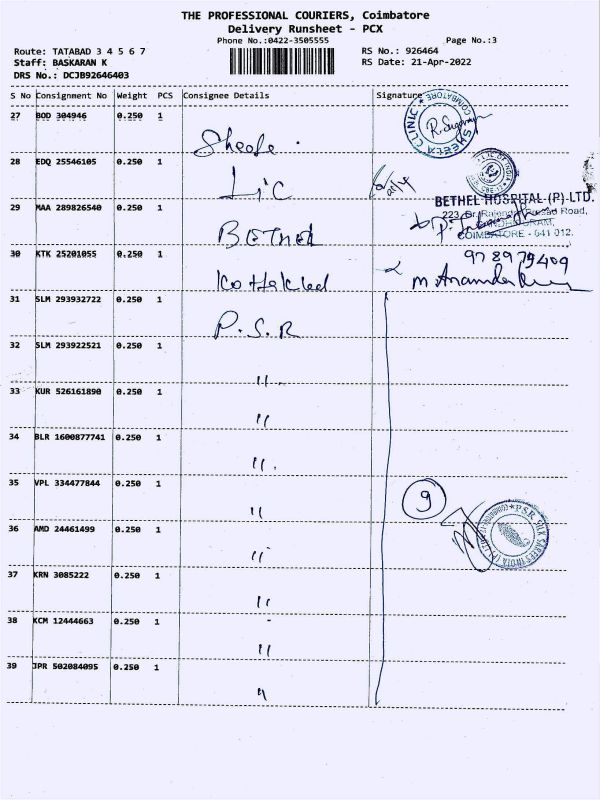 THE PROFESSIONAL COURIERS, Coimbatore
Delivery Runsheet - PCX
Phone No.:0422-3505555 Page No.:3
Route: TATABAD 3 4 5 6 7 RS No.: 926464
Staff: BASKARAN K RS Date: 21-Apr-2022
DRS No.: DCJB92646403
S No Consignment No Weight PCS Consignee Details Signature
27 BOD 304946 0.250 1
SHEELA CLINIC COIMBATORE
28 EDQ 25546105 0.250 1
LIC
29 MAA 289826540 0.250 1
BETHEL HOSPITAL (P) LTD.
223, Dr. Rajendra Prasad Road,
COIMBATORE - 641 012.
BETHEL
30 KTK 25201055 0.250 1
9789779409
31 SLM 293932722 0.250 1
P.S.R
32 SLM 293922521 0.250 1
"
33 KUR 526161890 0.250 1
"
34 BLR 1600877741 0.250 1
"
35 VPL 334477844 0.250 1
"
9
PSR SILK SAREES INDIA (P) LTD
36 AMD 24461499 0.250 1
"
37 KRN 3085222 0.250 1
"
38 KCM 12444663 0.250 1
"
39 JPR 502084095 0.250 1
"